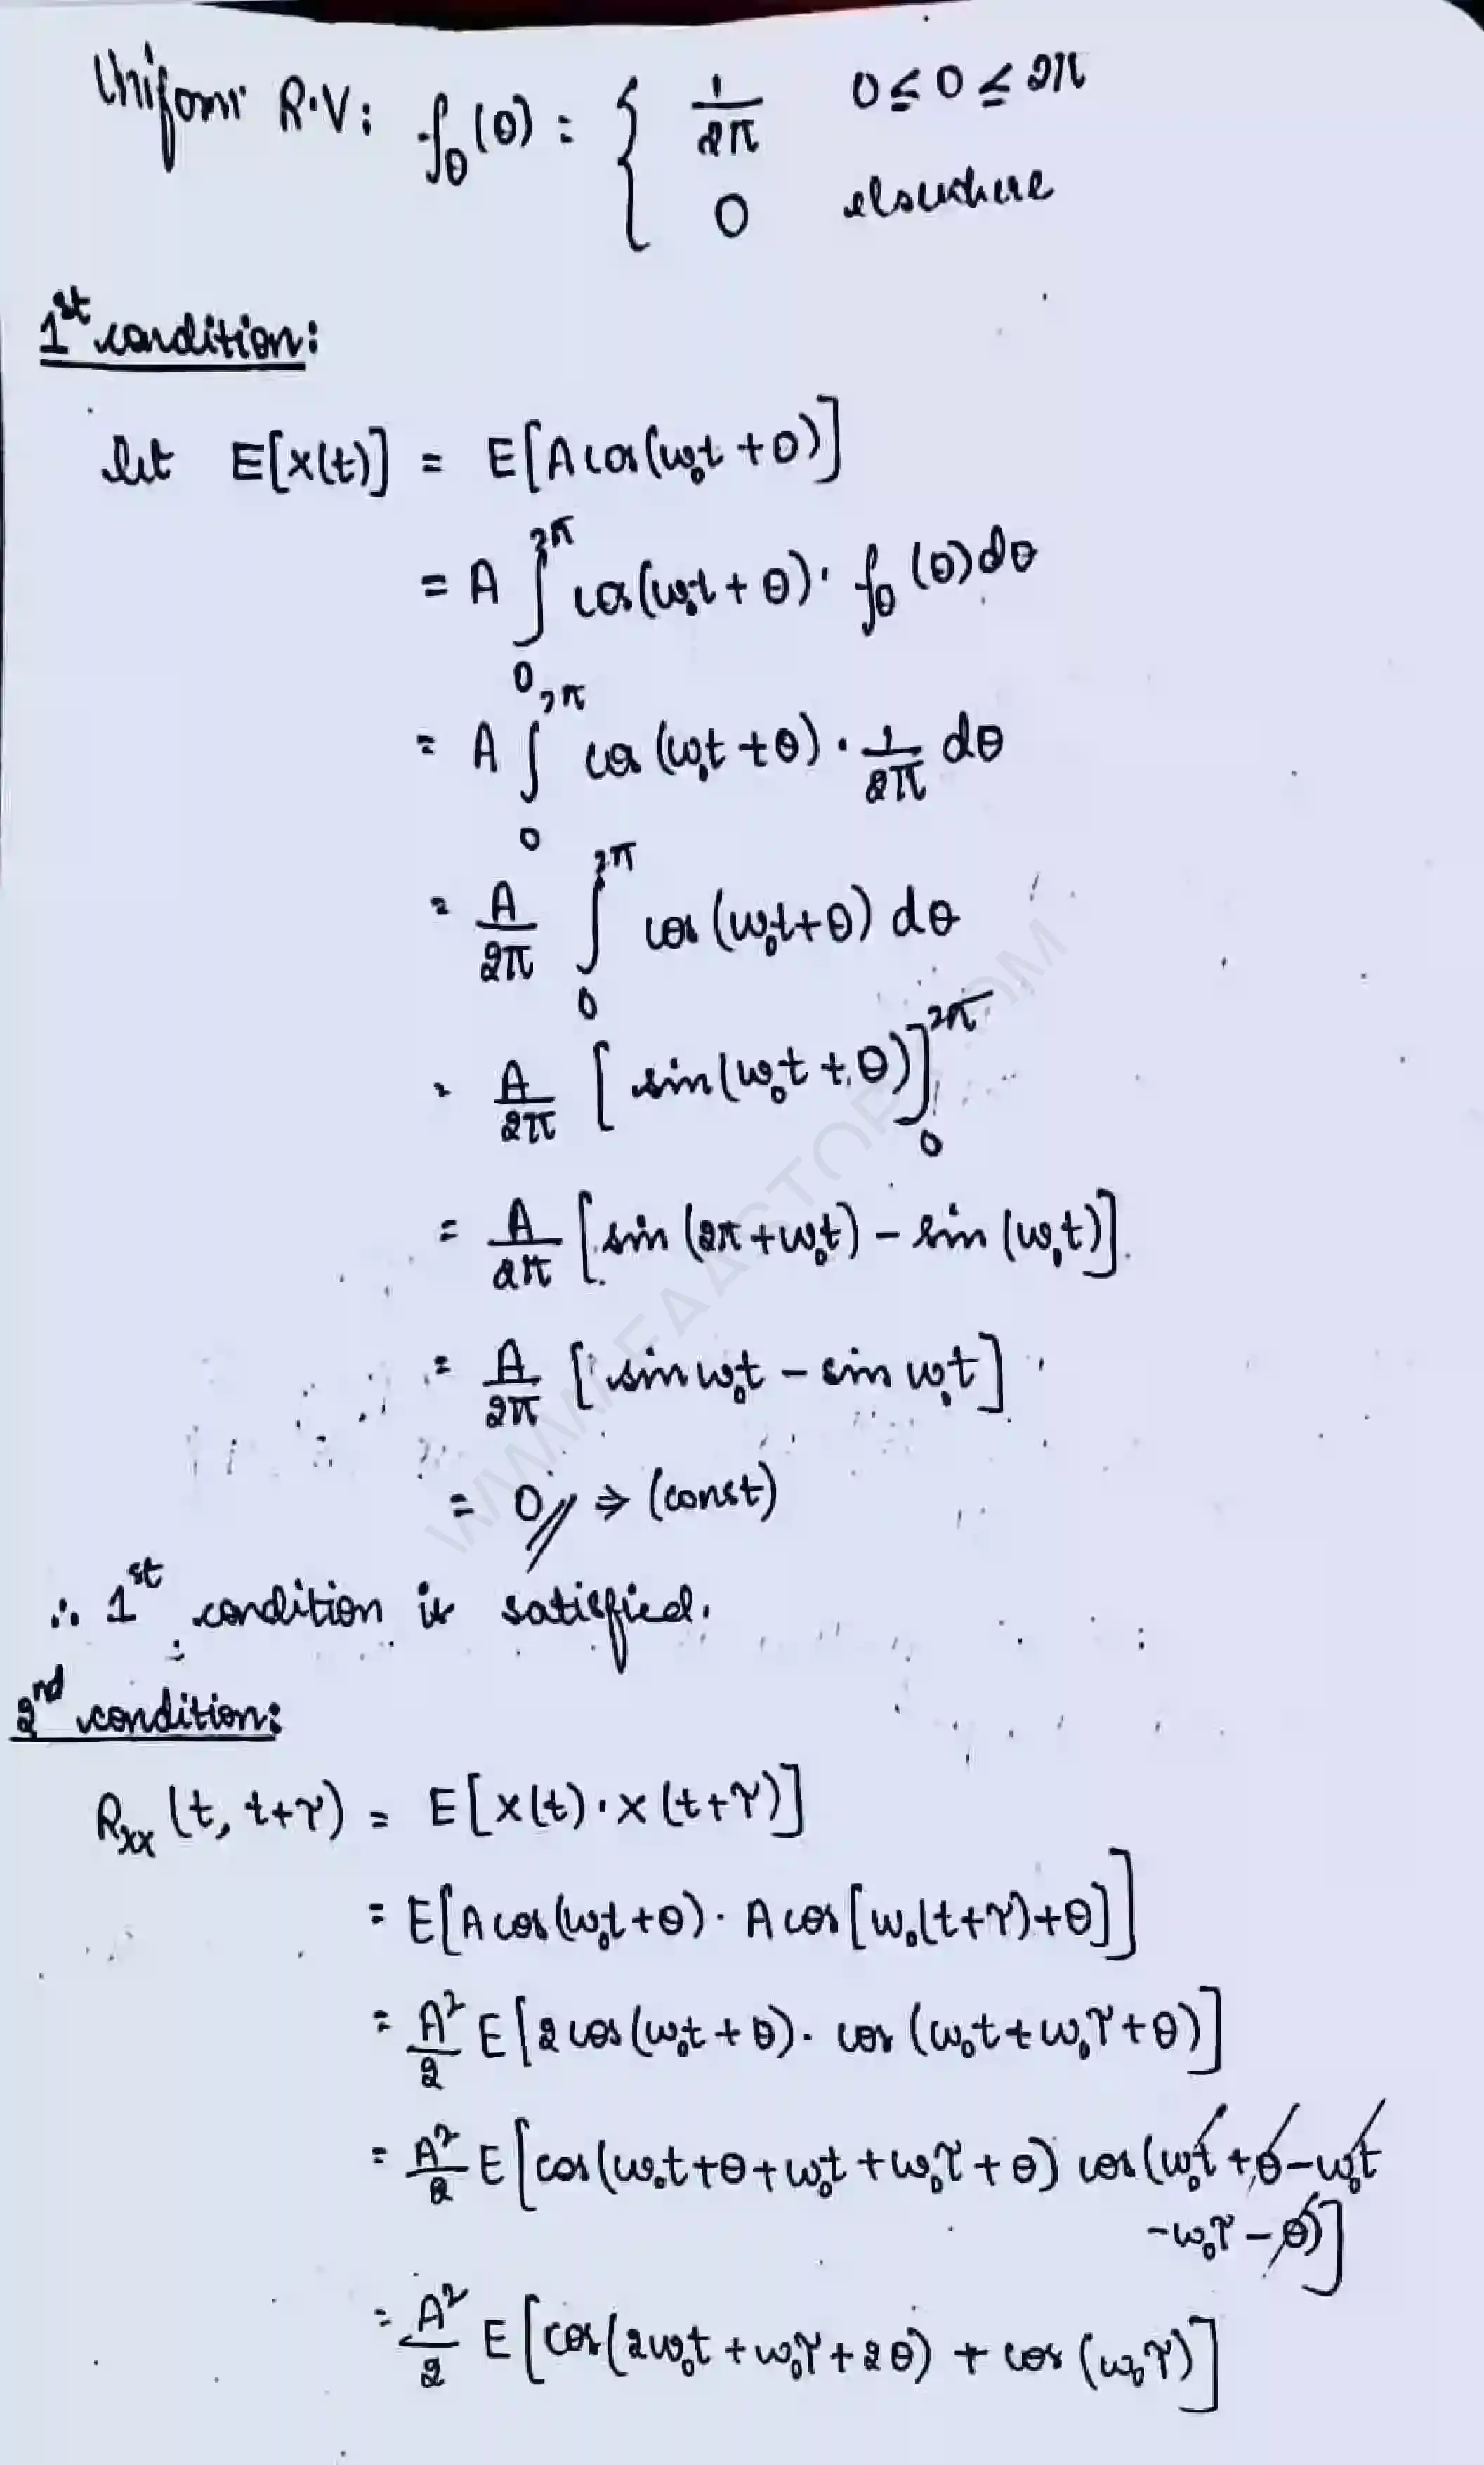 Uniform R.V: fθ(θ) = { 1/2π 0 ≤ θ ≤ 2π
0 elsewhere
1st condition:
let E[X(t)] = E[A cos(ω₀t + θ)]
= A ∫₀^2π cos(ω₀t + θ) · fθ(θ) dθ
= A ∫₀^2π cos(ω₀t + θ) · 1/2π dθ
= A/2π ∫₀^2π cos(ω₀t + θ) dθ
= A/2π [sin(ω₀t + θ)]₀^2π
= A/2π [sin(2π + ω₀t) - sin(ω₀t)]
= A/2π [sin ω₀t - sin ω₀t]
= 0// ⇒ (const)
∴ 1st condition is satisfied.
2nd condition:
Rxx(t, t+τ) = E[X(t) · X(t+τ)]
= E[A cos(ω₀t + θ) · A cos[ω₀(t+τ) + θ]]
= A²/2 E[2 cos(ω₀t + θ) · cos(ω₀t + ω₀τ + θ)]
= A²/2 E[cos(ω₀t + θ + ω₀t + ω₀τ + θ) cos(ω₀t + θ - ω₀t
- ω₀τ - θ)]
= A²/2 E[cos(2ω₀t + ω₀τ + 2θ) + cos(ω₀τ)]